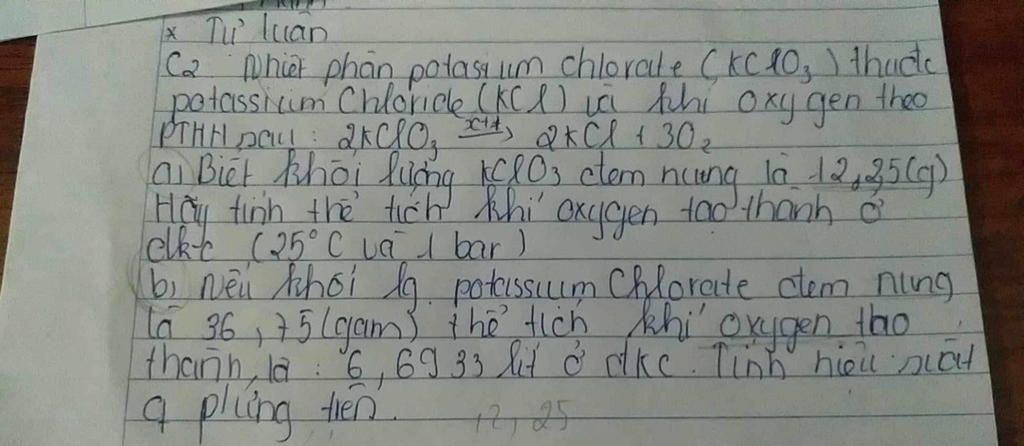 * Tự luận
C2 Nhiệt phân potassium chlorate (KClO3) thuđc
potassium Chloride (KCl) và khí oxygen theo
PTHH sau: 2KClO3 xt,t→ 2KCl + 3O2
a) Biết khối lượng KClO3 đem nung là 12,25(g)
Hãy tính thể tích khí oxygen tạo thành ở
đkc (25°C và 1 bar)
b) Nếu khối lg potassium Chlorate đem nung
là 36,75(gam) thể tích khí oxygen tạo
thành là: 6,6933 lít ở đkc. Tính hiệu suất
q phứng trên.
12,25